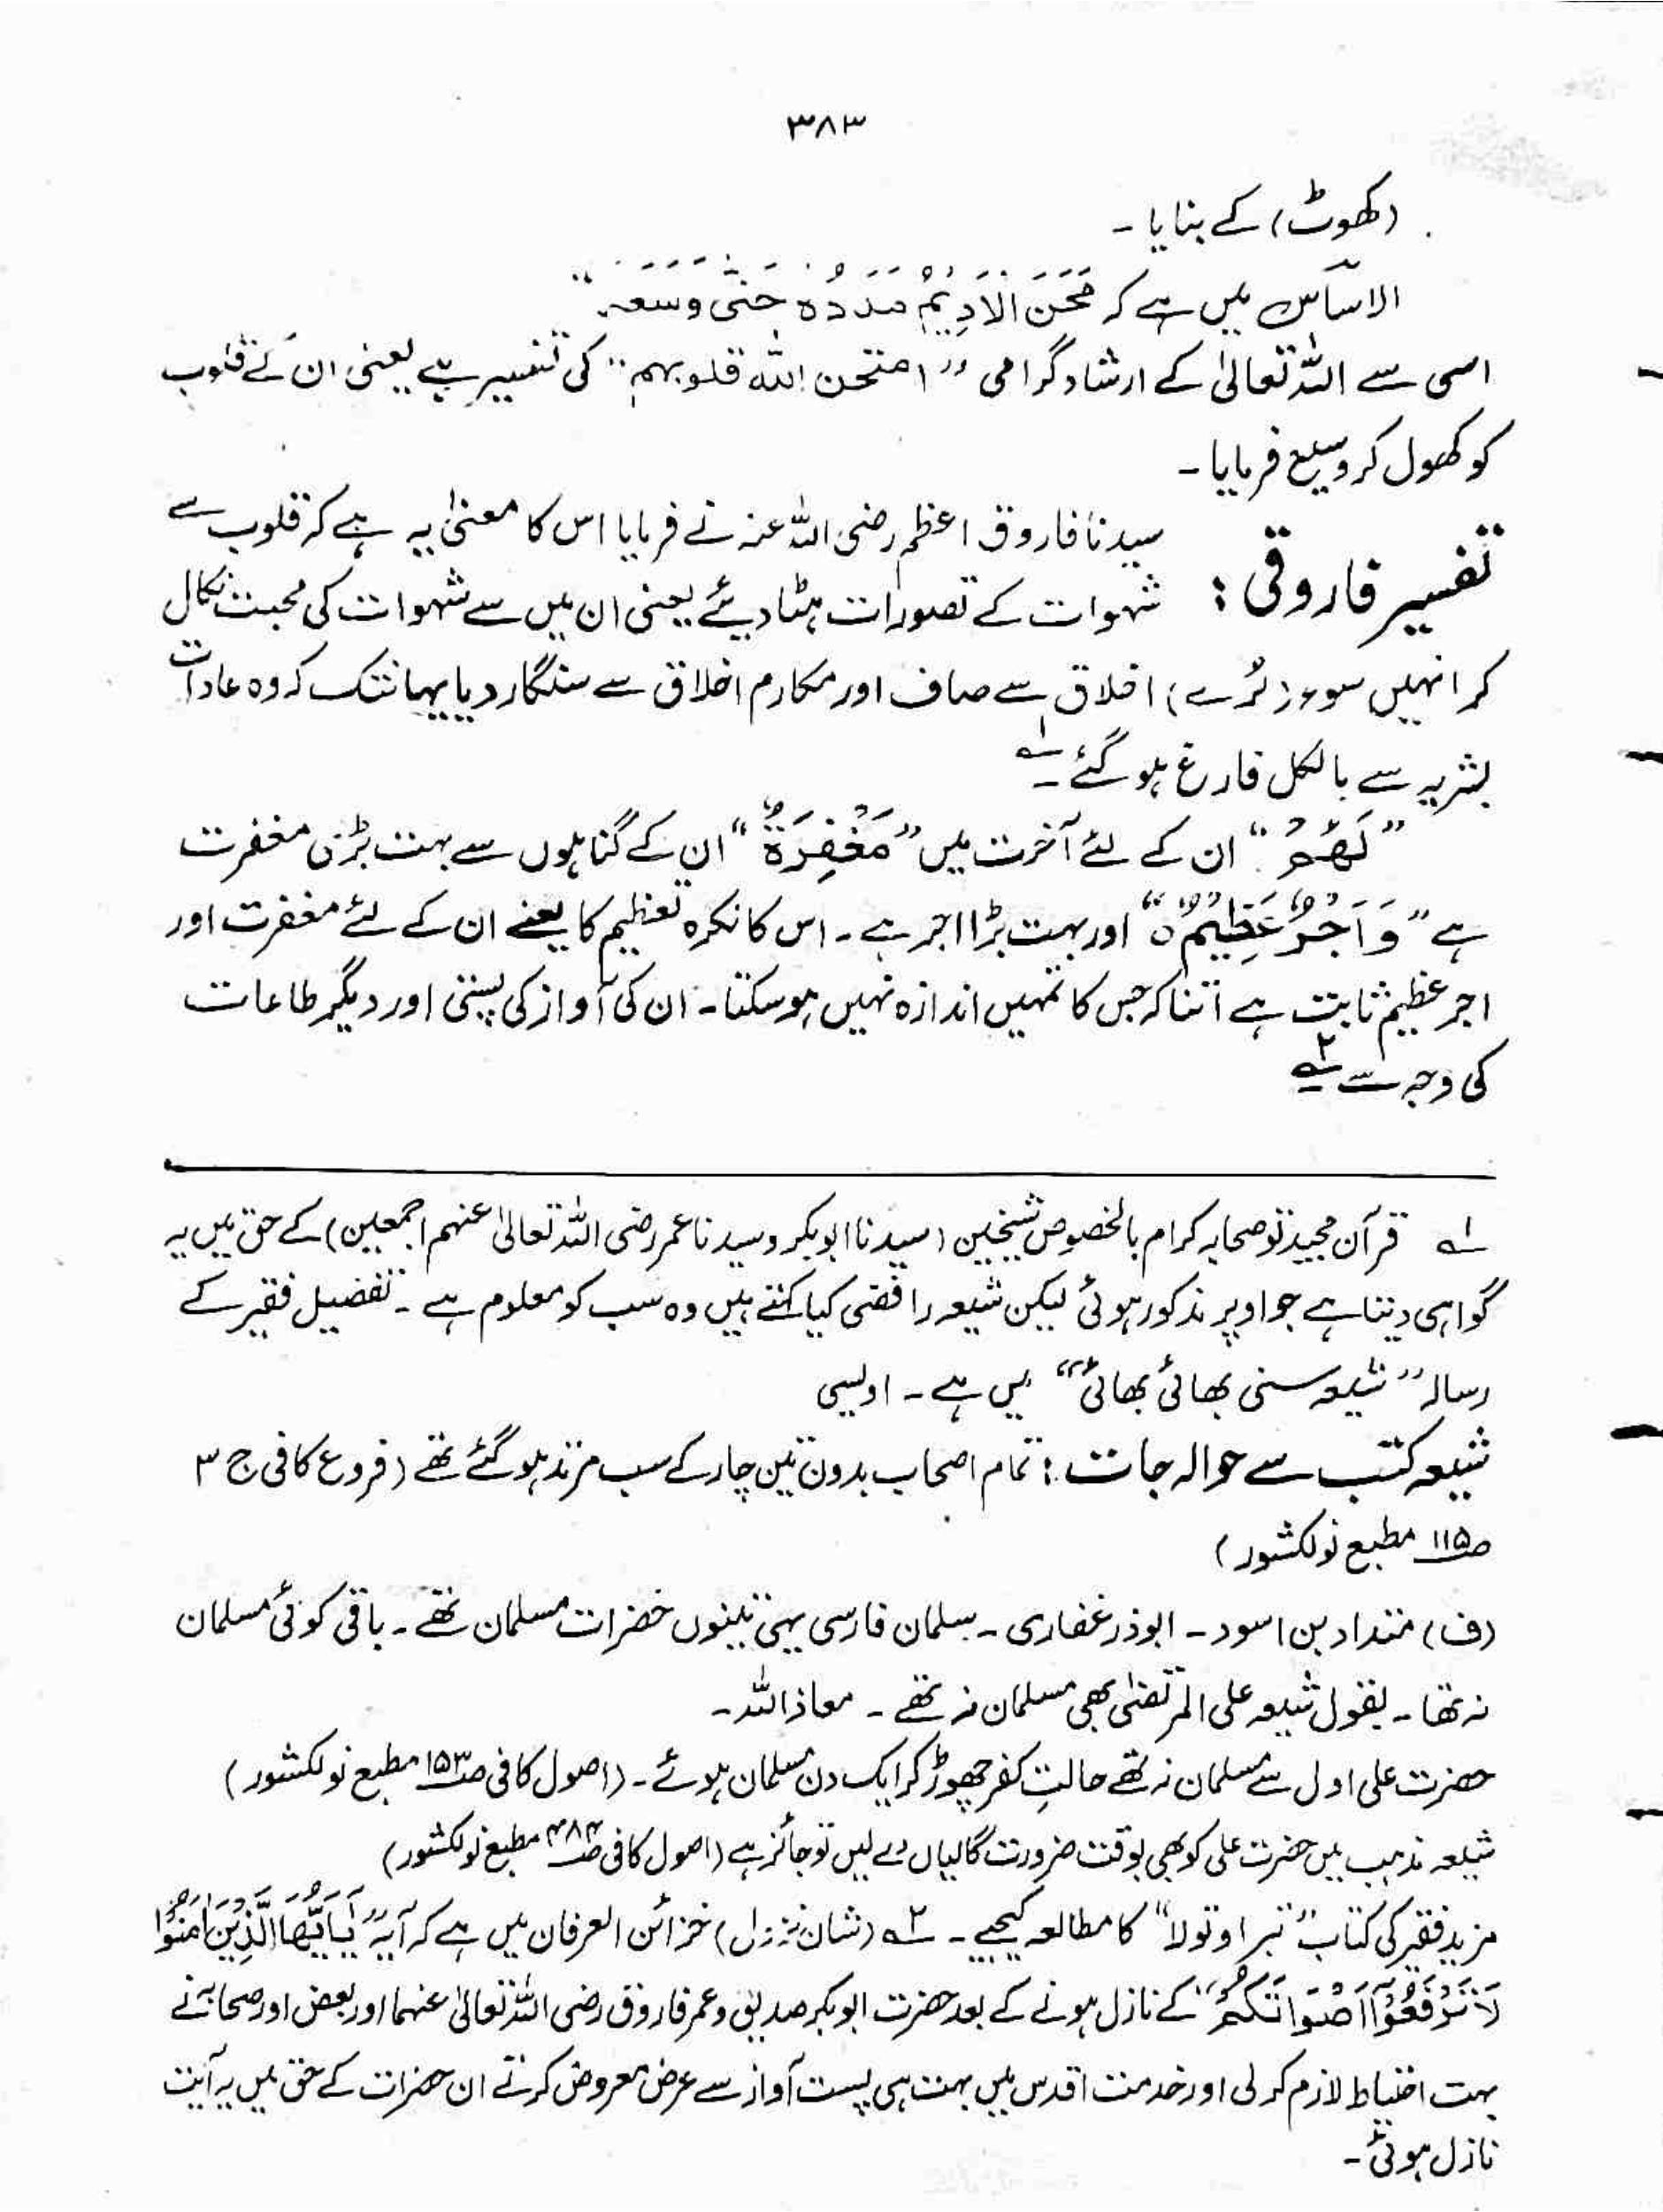 ۳۸۳
(کھوٹ) کے بنایا ۔
الاساس میں ہے کہ مَحَنَ الْاَدِیْمُ مَدَدُہ حَتّٰی وسعہ۔"
اسی سے اللہ تعالیٰ کے ارشاد گرامی "امتحن اللہ قلوبہم" کی تفسیر ہے یعنی ان کے قلوب
کو کھول کر وسیع فرمایا ۔
تفسیر فاروقی : سیدنا فاروق اعظم رضی اللہ عنہ نے فرمایا اس کا معنیٰ یہ ہے کہ قلوب سے
شہوات کے تصورات ہٹا دیئے یعنی ان میں سے شہوات کی محبت نکال
کر انہیں سوء (بُرے) اخلاق سے صاف اور مکارم اخلاق سے سنگار دیا یہانتک کہ وہ عادات
بشریہ سے بالکل فارغ ہو گئے ۔ ۱؎
"لَھُمْ" ان کے لئے آخرت میں "مَغْفِرَةٌ" ان کے گناہوں سے بہت بڑی مغفرت
ہے "وَ اَجْرٌ عَظِیْمٌ ہ" اور بہت بڑا اجر ہے ۔ اس کا نکرہ تعظیم کا یعنے ان کے لئے مغفرت اور
اجر عظیم ثابت ہے اتنا کہ جس کا تمہیں اندازہ نہیں ہو سکتا ۔ ان کی آواز کی پستی اور دیگر طاعات
کی وجہ سے ۲؎
۱؎ قرآن مجید تو صحابہ کرام بالخصوص شیخین (سیدنا ابوبکر و سیدنا عمر رضی اللہ تعالیٰ عنہم اجمعین) کے حق میں یہ
گواہی دیتا ہے جو اوپر مذکور ہوئی لیکن شیعہ رافضی کیا کہتے ہیں وہ سب کو معلوم ہے ۔ تفضیل فقیر کے
رسالہ "شیعہ سنی بھائی بھائی" میں ہے ۔ اویسی
شیعہ کتب سے حوالہ جات : تمام اصحاب بدون تین چار کے سب مرتد ہو گئے تھے (فروع کافی ج ۳
صـ۱۱۵ مطبع نولکشور)
(ف) مقداد بن اسود ۔ ابوذر غفاری ۔ سلمان فارسی یہی تینوں حضرات مسلمان تھے ۔ باقی کوئی مسلمان
نہ تھا ۔ بقول شیعہ علی المرتضیٰ بھی مسلمان نہ تھے ۔ معاذ اللہ ۔
حضرت علی اول سے مسلمان نہ تھے حالتِ کفر چھوڑ کر ایک دن مسلمان ہوئے ۔ (اصول کافی صـ۱۵۳ مطبع نولکشور)
شیعہ مذہب میں حضرت علی کو بھی بوقت ضرورت گالیاں دے لیں تو جائز ہے (اصول کافی صـ۴۸۴ مطبع نولکشور)
مزید فقیر کی کتاب "تبرا و تولا" کا مطالعہ کیجیے ۔ ۲؎ (شان نزول) خزائن العرفان میں ہے کہ آیہ "یٰٓاَیُّھَا الَّذِیْنَ اٰمَنُوْا
لَا تَرْفَعُوْٓا اَصْوَاتَکُمْ" کے نازل ہونے کے بعد حضرت ابوبکر صدیق و عمر فاروق رضی اللہ تعالیٰ عنہما اور بعض اور صحابہ نے
بہت احتیاط لازم کر لی اور خدمت اقدس میں بہت ہی پست آواز سے عرض معروض کرتے ان حضرات کے حق میں یہ آیت
نازل ہوئی ۔